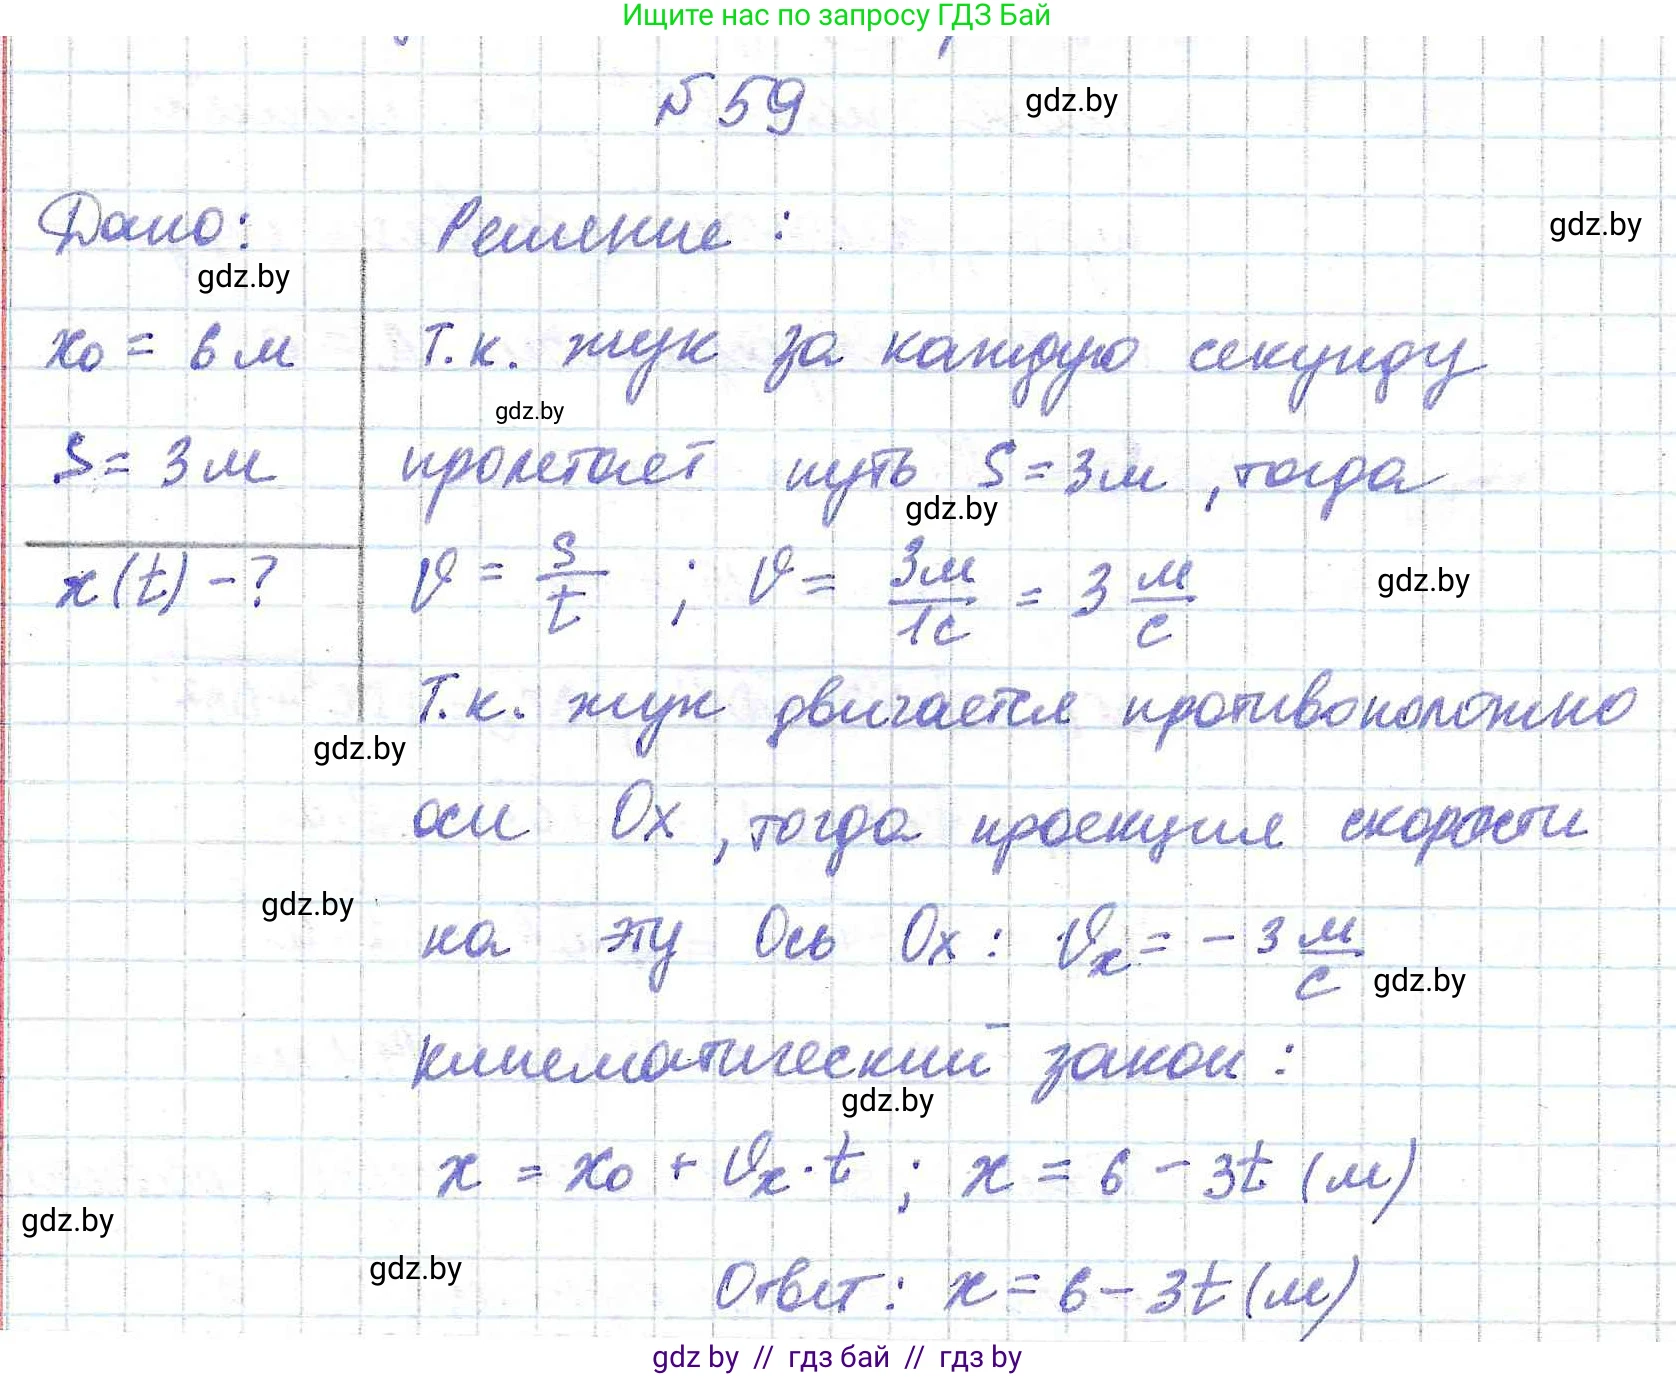 Ищите нас по запросу ГДЗ Бай
№ 59
gdz.by
Дано:
Решение:
gdz.by
gdz.by
x₀ = 6 м
Т.к. жук за каждую секунду
gdz.by
S = 3 м
пролетает путь S = 3м, тогда
gdz.by
x(t) - ?
υ = s/t ; υ = 3м/1с = 3 м/с
gdz.by
Т.к. жук двигается противоположно
gdz.by
оси Ox, тогда проекция скорости
gdz.by
на эту Ось Ox: υₓ = - 3 м/с
gdz.by
кинематический закон:
gdz.by
x = x₀ + υₓ · t ; x = 6 - 3t (м)
gdz.by
gdz.by
Ответ: x = 6 - 3t (м)
gdz by // гдз бай // гдз by